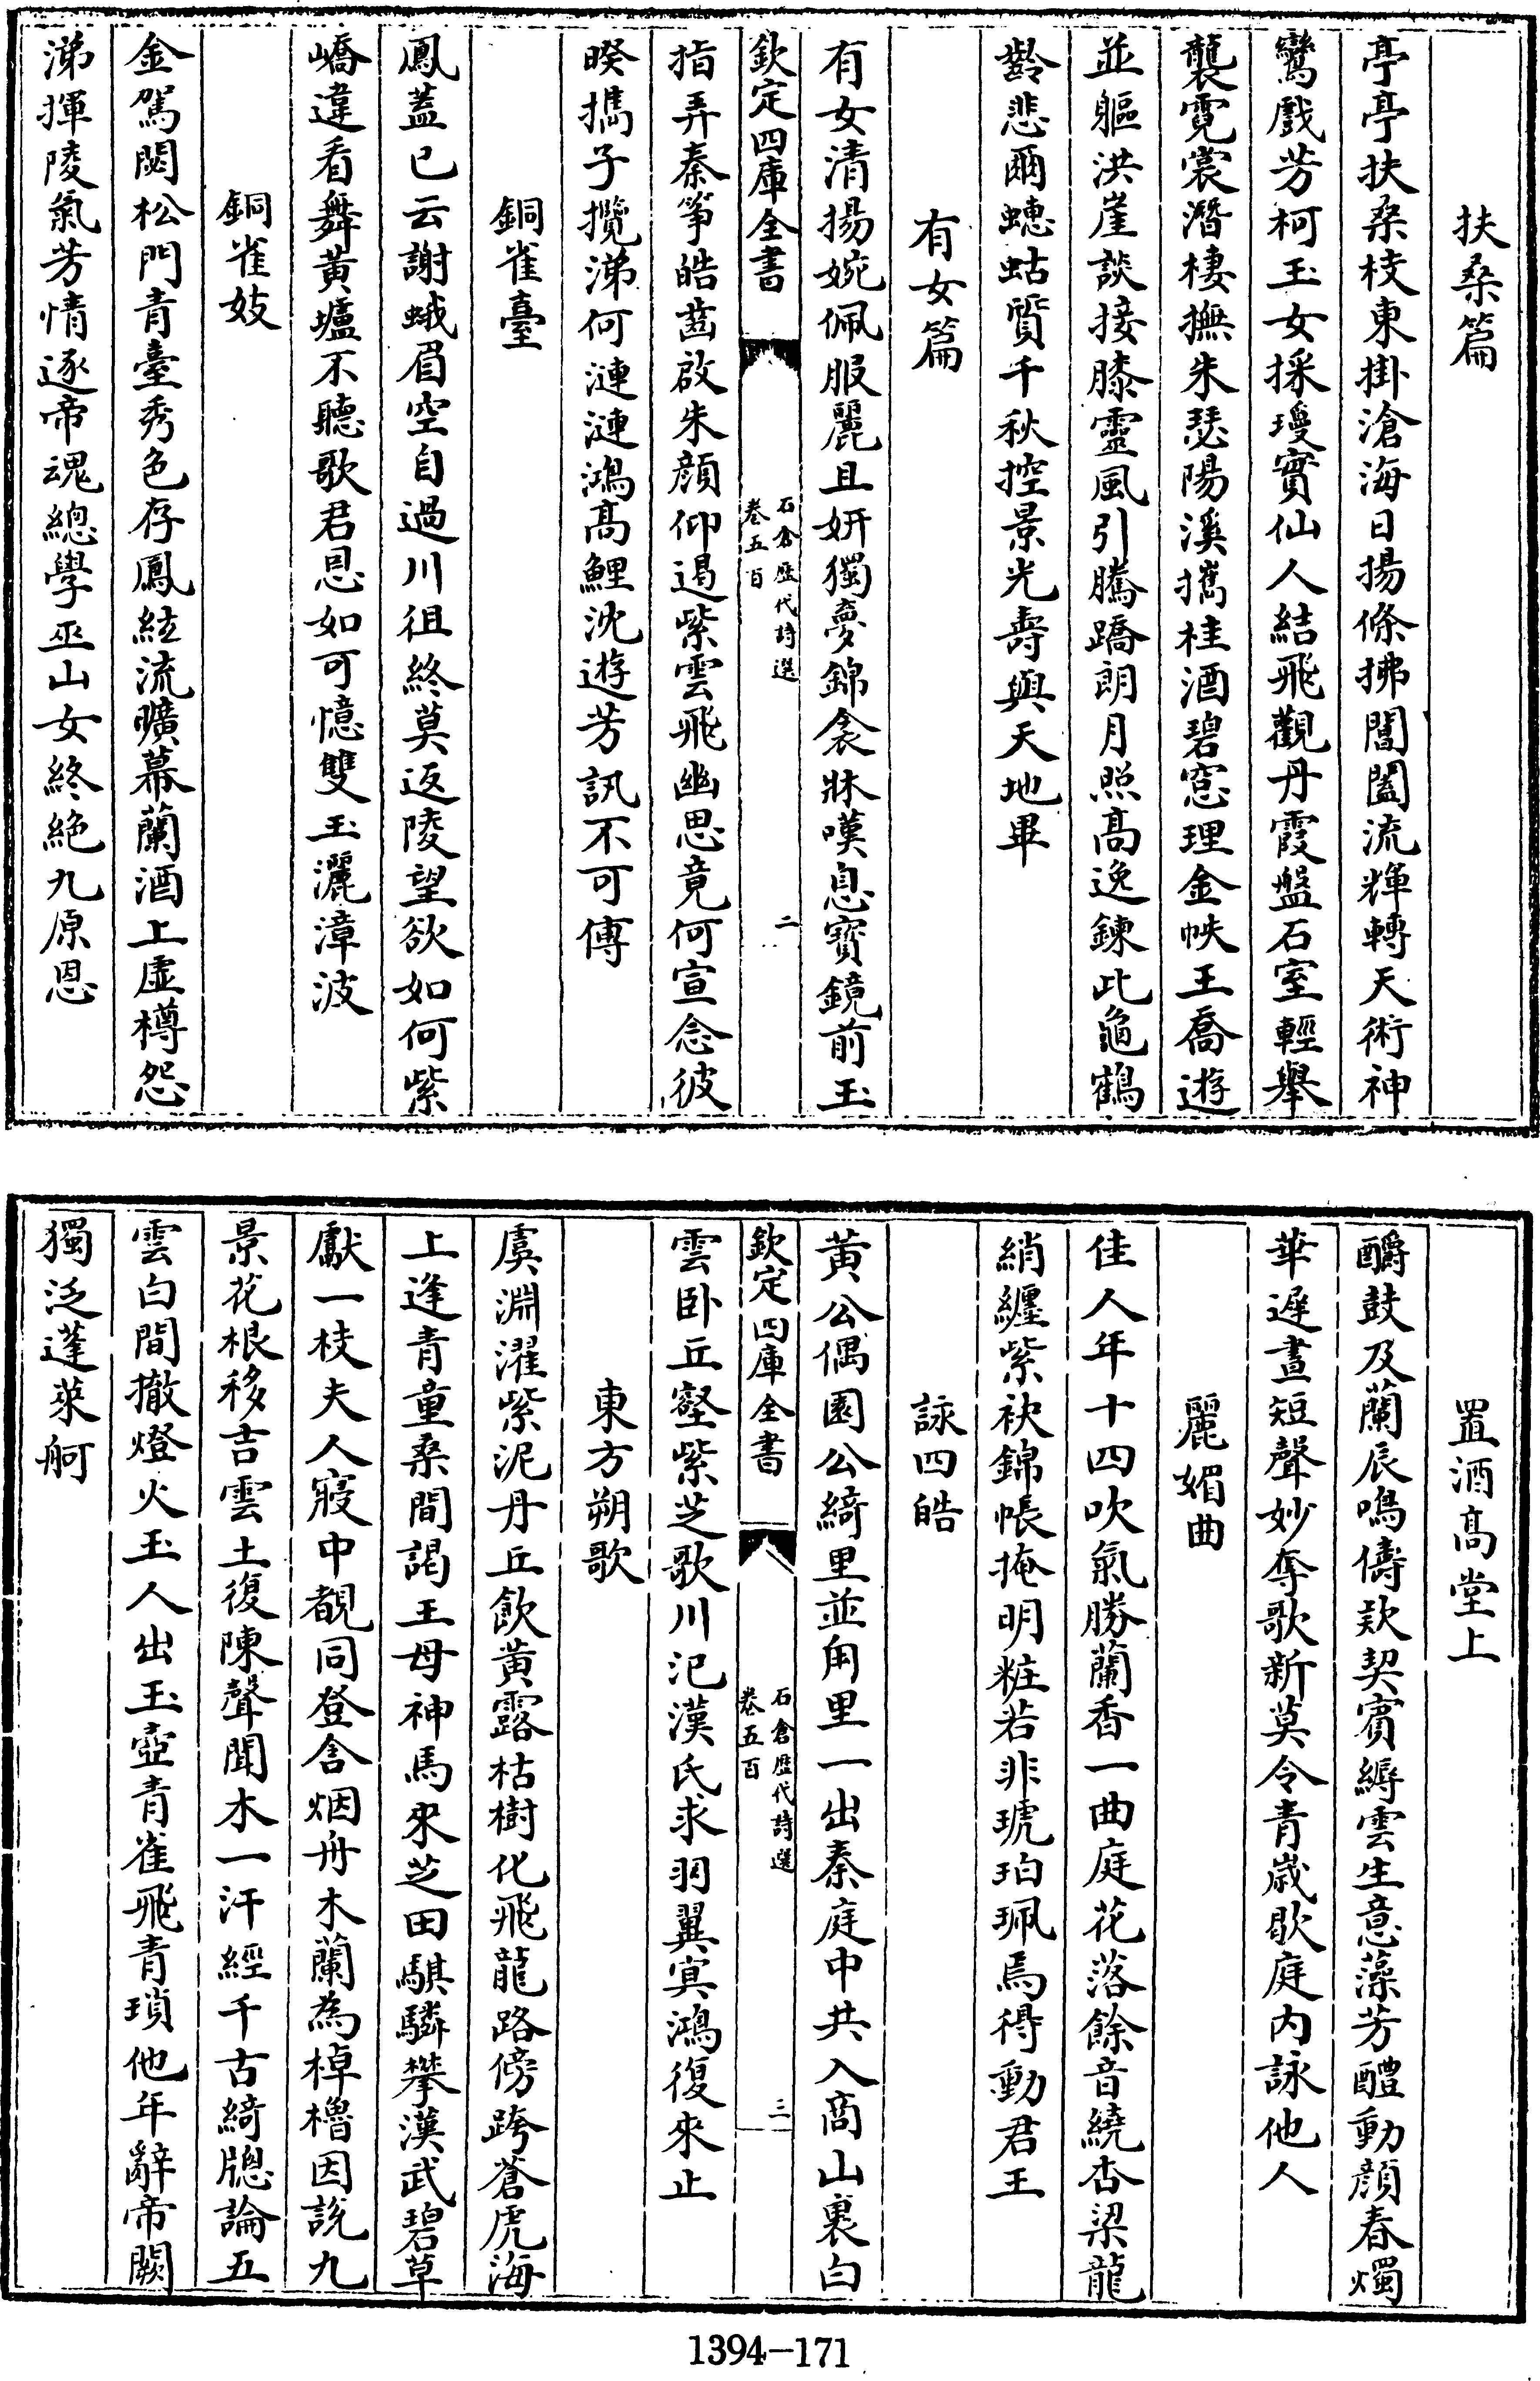 扶桑篇
亭亭扶桑枝東掛滄海日揚條拂閶闔流輝轉天術神
鸞戲芳柯玉女採瓊實仙人結飛觀丹霞盤石室輕舉
襲霓裳潛棲撫朱瑟陽溪攜桂酒碧窓理金帙王喬遊
並軀洪崖談接膝靈風引騰蹻朗月照高逸鍊此龜鶴
齡悲爾蟪蛄質千秋控景光壽與天地畢
有女篇
有女清揚婉佩服麗且妍獨夢錦衾牀嘆息寶鏡前玉
欽定四庫全書
石倉歷代詩選
卷五百
二
指弄秦筝皓齒啟朱顔仰遏紫雲飛幽思竟何宣念彼
暌攜子攬涕何漣漣鴻高鯉沈遊芳訊不可傳
銅雀臺
鳳蓋已云謝蛾眉空自過川徂終莫返陵望欲如何紫
嶠違看舞黃壚不聽歌君恩如可憶雙玉灑漳波
銅雀妓
金駕閟松門青臺秀色存鳳絃流曠幕蘭酒上虛樽怨
涕揮陵氣芳情逐帝魂總學巫山女終絶九原恩
置酒高堂上
釂鼓及蘭辰鳴儔欵契賓縟雲生意藻芳醴動顔春燭
華遲晝短聲妙奪歌新莫令青歲歇庭内詠他人
麗媚曲
佳人年十四吹氣勝蘭香一曲庭花落餘音繞杏梁龍
綃纏紫袂錦帳掩明粧若非琥珀珮焉得動君王
詠四皓
黃公偶園公綺里並甪里一出秦庭中共入商山裏白
欽定四庫全書
石倉歷代詩選
卷五百
三
雲卧丘壑紫芝歌川汜漢氏求羽翼冥鴻復來止
東方朔歌
虞淵濯紫泥丹丘飲黃露枯樹化飛龍路傍跨蒼虎海
上逢青童桑間謁王母神馬來芝田騏驎攀漢武碧草
獻一枝夫人寢中覩同登含烟舟木蘭為棹櫓因說九
景花根移吉雲土復陳聲聞木一汗經千古綺牕論五
雲白間撤燈火玉人出玉壺青雀飛青瑣他年辭帝闕
獨泛蓬萊舸
1394-171